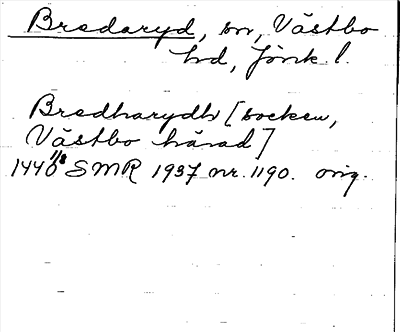 Bredaryd, sn, Västbo
hd, Jönk. l.
Bredharydh [socken,
Västbo härad]
1440 11/8 SMR 1937 nr. 1190. orig.